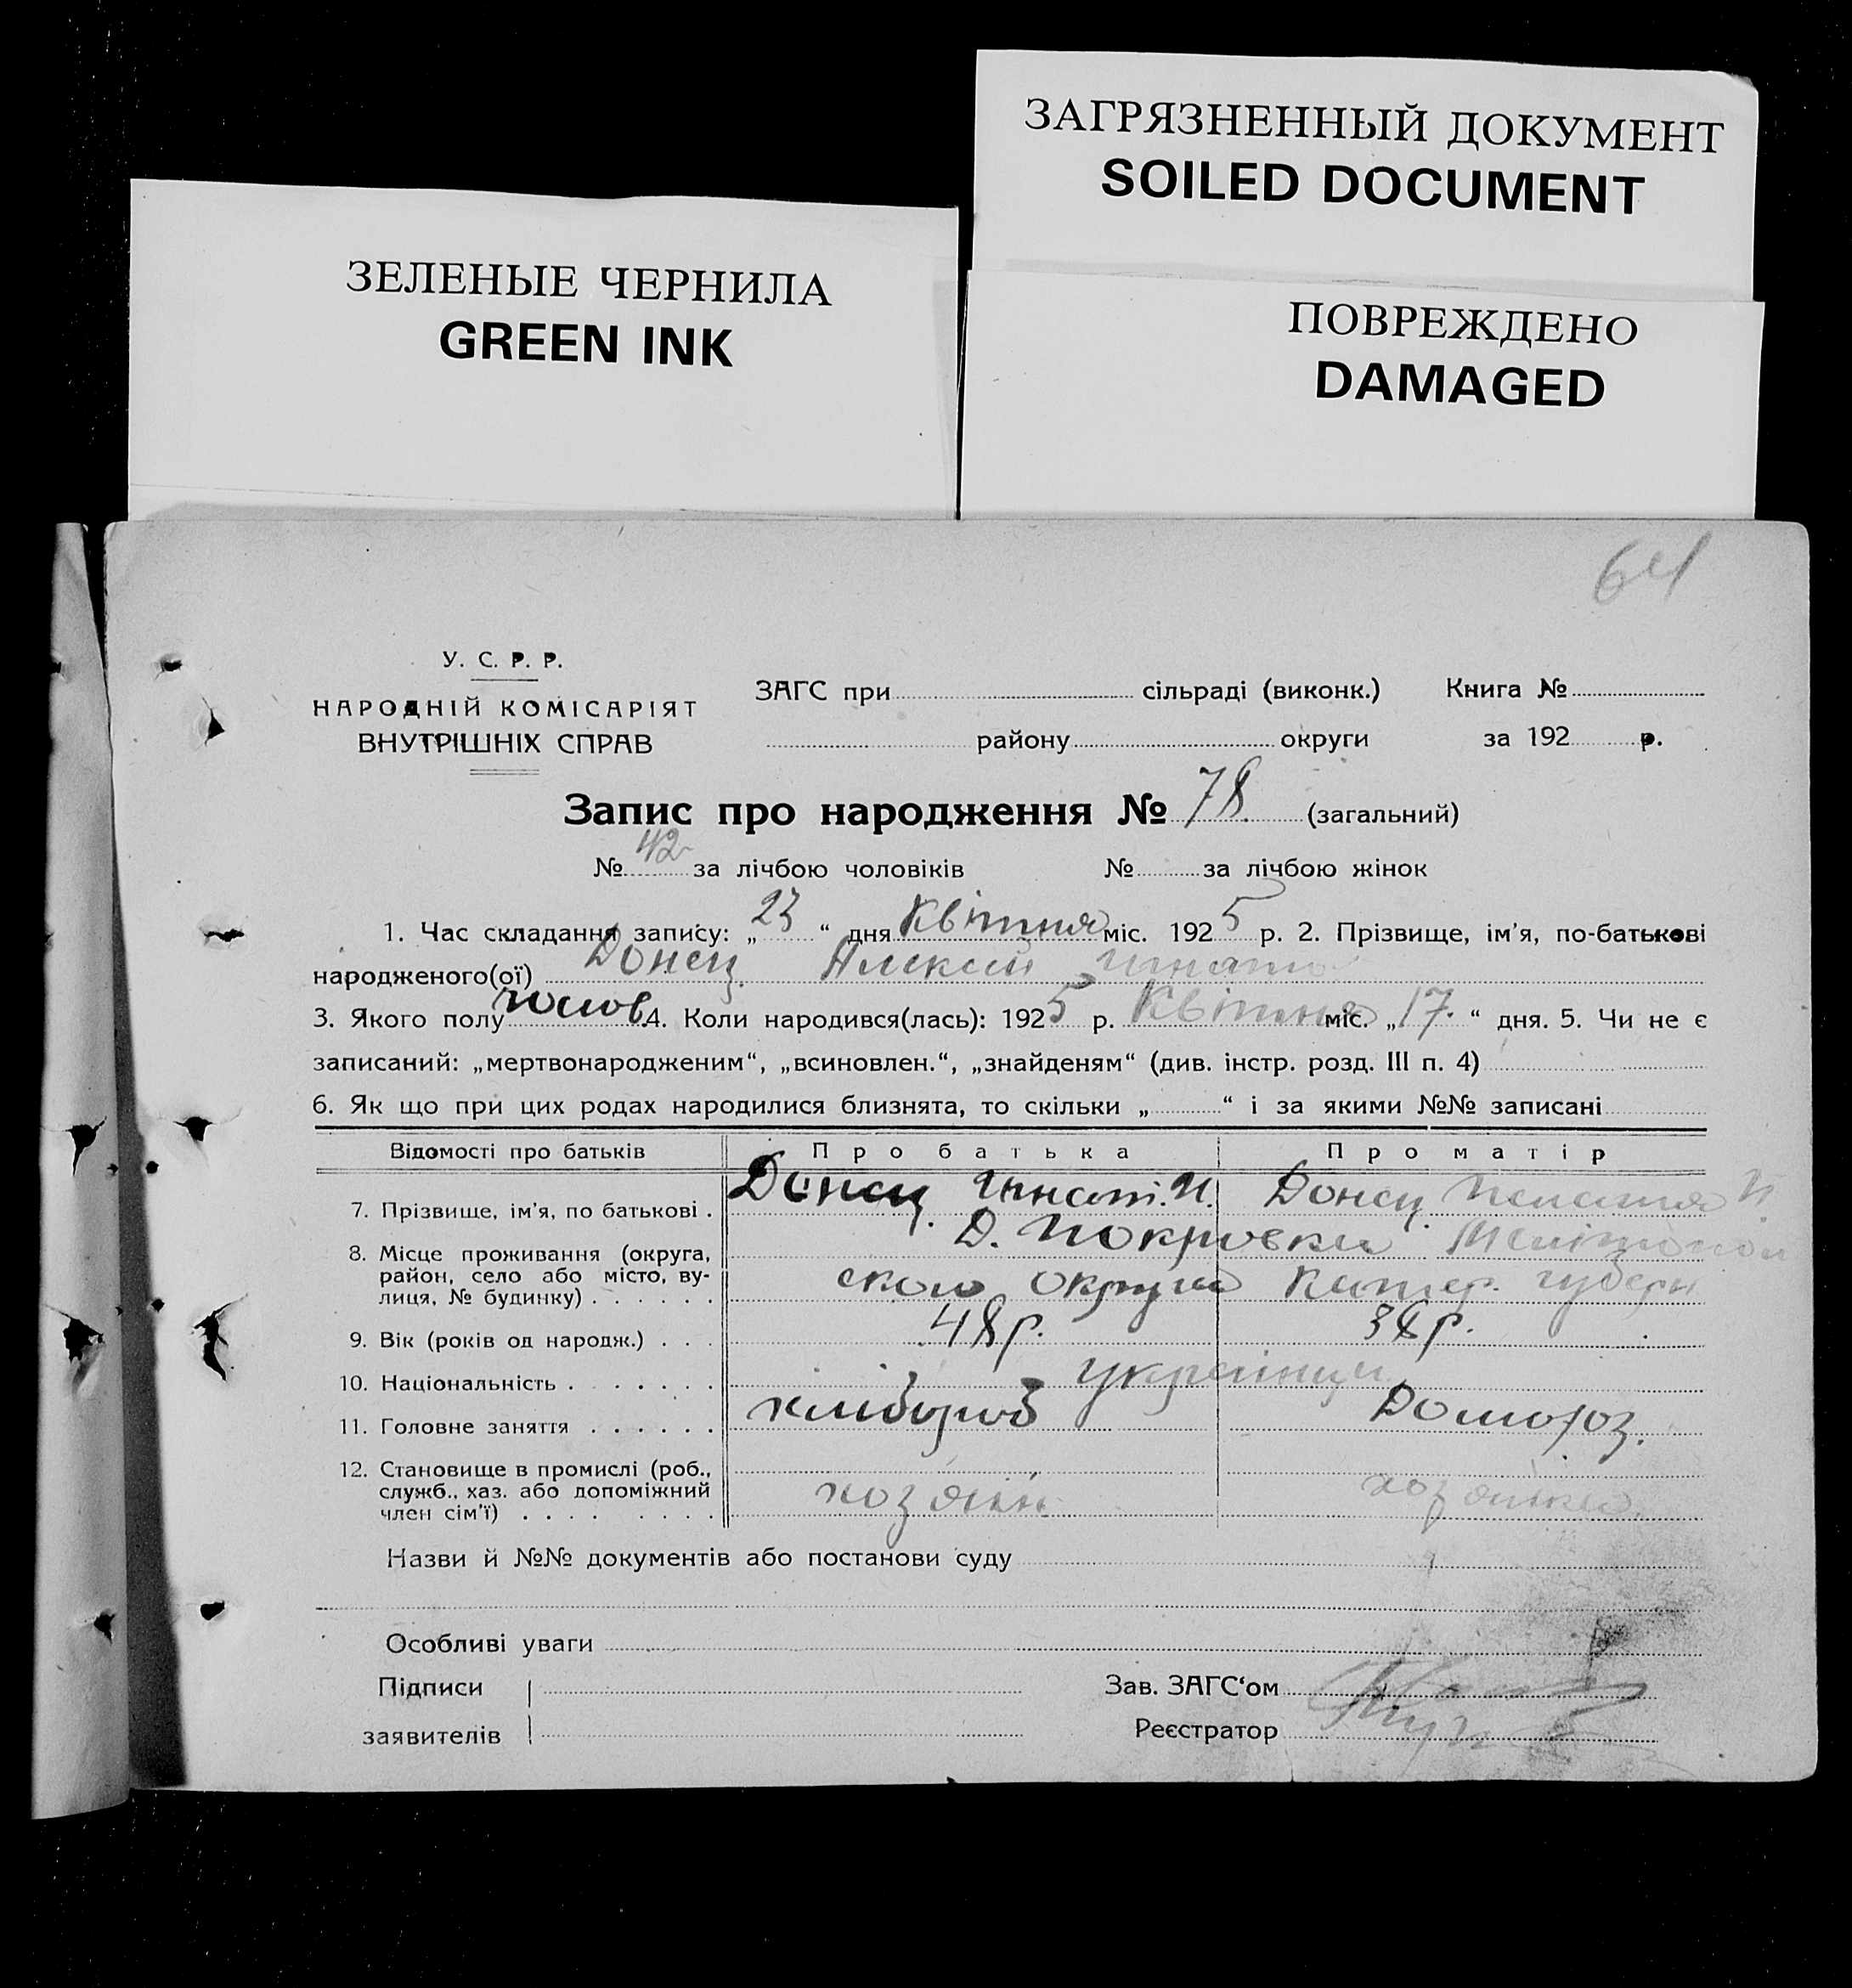 ЗАГРЯЗНЕННЫЙ ДОКУМЕНТ
SOILED DOCUMENT
ЗЕЛЕНЫЕ ЧЕРНИЛА
GREEN INK
ПОВРЕЖДЕНО
DAMAGED
64
У. С. Р. Р.
НАРОДНІЙ КОМІСАРІЯТ
ВНУТРІШНІХ СПРАВ
ЗАГС при сільраді (виконк.) Книга №
району округи за 192 р.
Запис про народження № 78 (загальний)
№ 42 за лічбою чоловіків № за лічбою жінок
1. Час складання запису: „23“ дня Квітня міс. 1925 р. 2. Прізвище, ім'я, по-батькові
народженого(ої) Донец Алексей Игнато
3. Якого полу чолов. 4. Коли народився(лась): 1925 р. Квітня міс. „17.“ дня. 5. Чи не є
записаний: „мертвонародженим“, „всиновлен.“, „знайденям“ (див. інстр. розд. III п. 4)
6. Як що при цих родах народилися близнята, то скільки „ “ і за якими №№ записані
Відомості про батьків Про батька Про матір
7. Прізвище, ім'я, по батькові . Донец Игнат. И. Донец
8. Місце проживання (округа, Д. Покровки Меліто
район, село або місто, ву-
лиця, № будинку) . . . . . . ского округа Катер. губерн
9. Вік (років од народж.) . . . 48 р. 38 р.
10. Національність . . . . . . . українци
11. Головне заняття . . . . . . хлибороб Домохоз.
12. Становище в промислі (роб.,
служб., хаз. або допоміжний хозяїн хозяйка
член сім'ї) . . . . . . . .
Назви й №№ документів або постанови суду
Особливі уваги
Підписи Зав. ЗАГС‘ом
заявителів Реєстратор